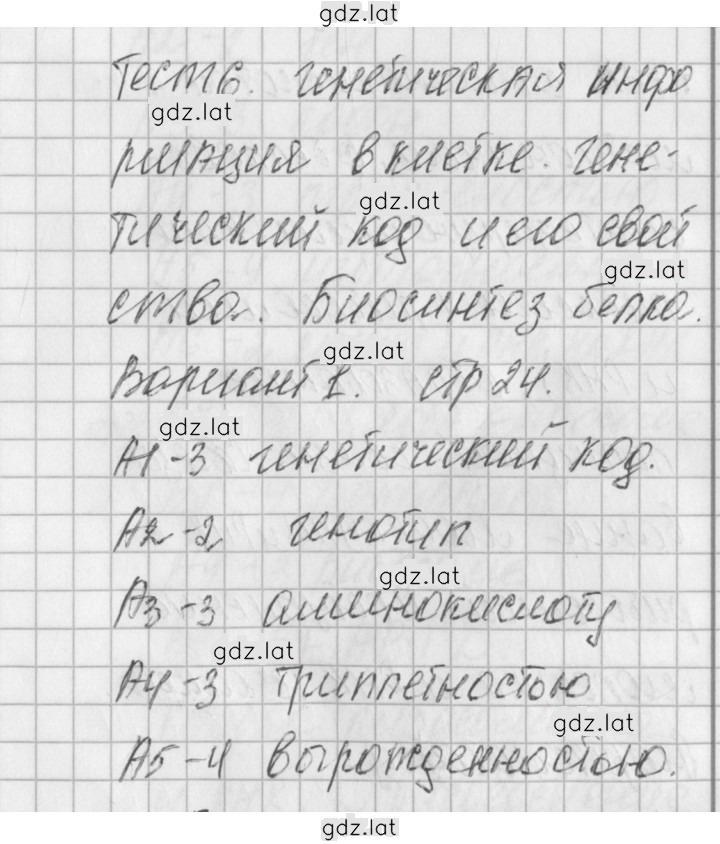 gdz.lat
Тест 6. генетическая инфо
gdz.lat
рмация в клетке. Гене-
gdz.lat
тический код и его свой
gdz.lat
ства. Биосинтез белка.
gdz.lat
Вариант 1. стр 24.
gdz.lat
А1-3 генетический код.
А2-2 генотип
gdz.lat
А3-3 аминокислоту
gdz.lat
А4-3 триплетностью
gdz.lat
А5-4 вырожденностью.
gdz.lat